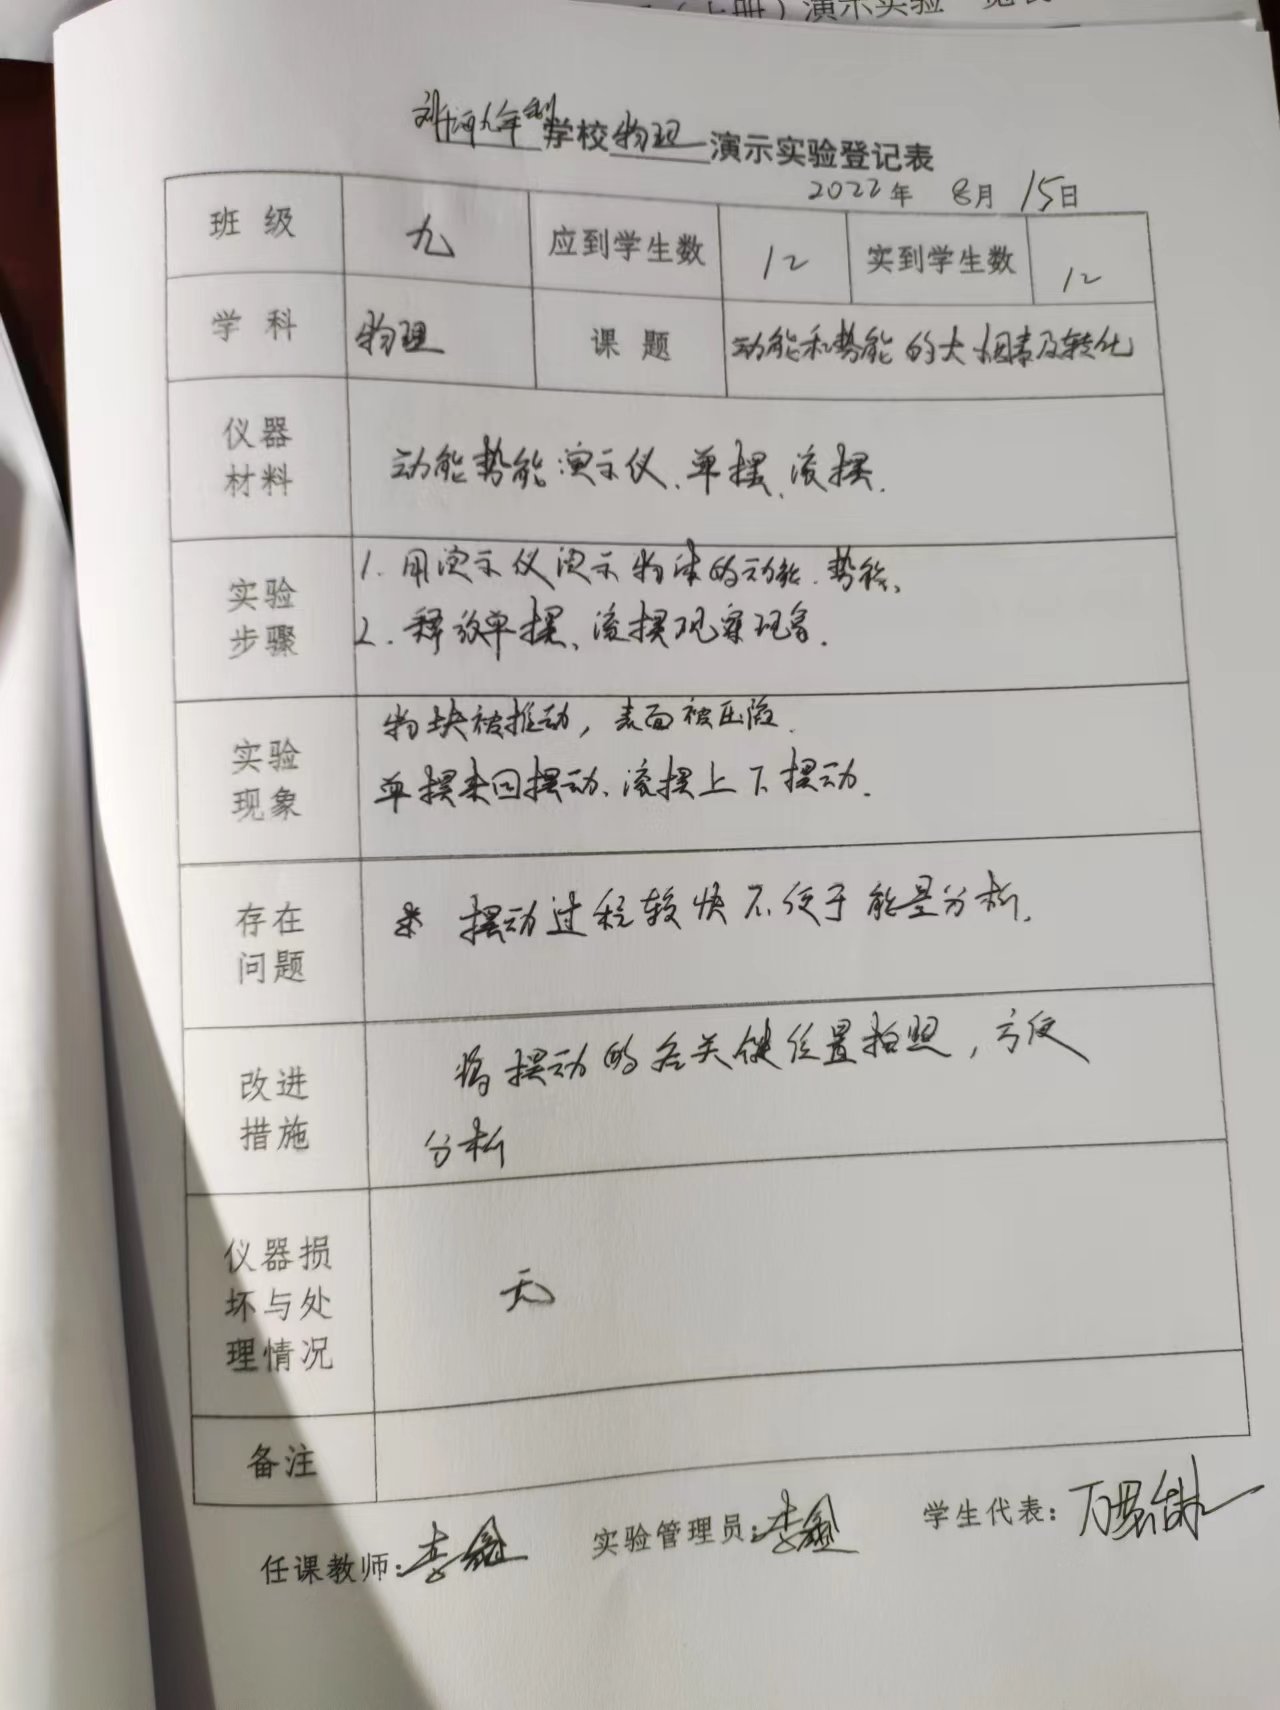 （上册）演示实验一览表
刘河九年制学校物理演示实验登记表
2022年 8月 15日
班 级 九 应到学生数 12 实到学生数 12
学 科 物理 课 题 动能和势能的大相素及转化
仪器
材料
动能势能演示仪、单摆、滚摆.
实验
步骤
1. 用演示仪演示物体的动能、势能、
2. 释放单摆、滚摆观察现象.
实验
现象
物块被推动，表面被压陷.
单摆来回摆动、滚摆上下摆动.
存在
问题
摆动过程较快不便于能量分析.
改进
措施
将摆动的各关键位置拍照，方便
分析
仪器损
坏与处
理情况
无
备注
任课教师：李鑫 实验管理员：李鑫 学生代表：